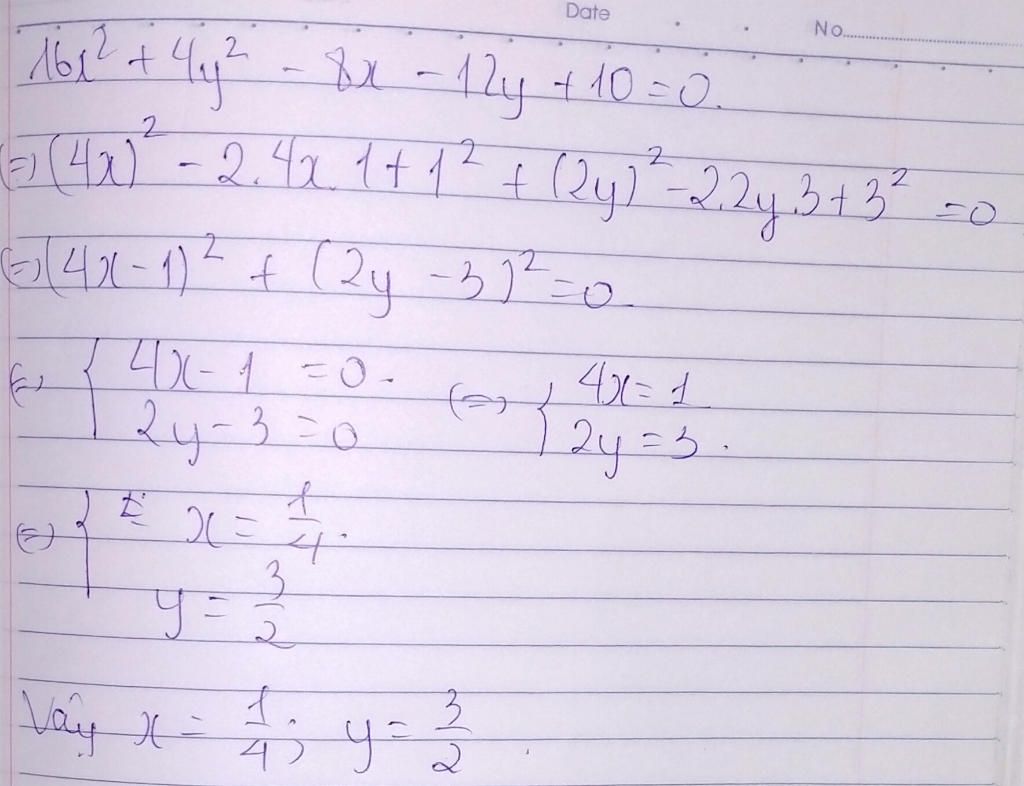 Date
No.
16x² + 4y² - 8x - 12y + 10 = 0.
(=) (4x)² - 2.4x.1 + 1² + (2y)² - 2.2y.3 + 3² = 0
(=) (4x - 1)² + (2y - 3)² = 0.
(=) { 4x - 1 = 0. (=) { 4x = 1
2y - 3 = 0 2y = 3.
(=) { x = 1/4.
y = 3/2
Vậy x = 1/4; y = 3/2.